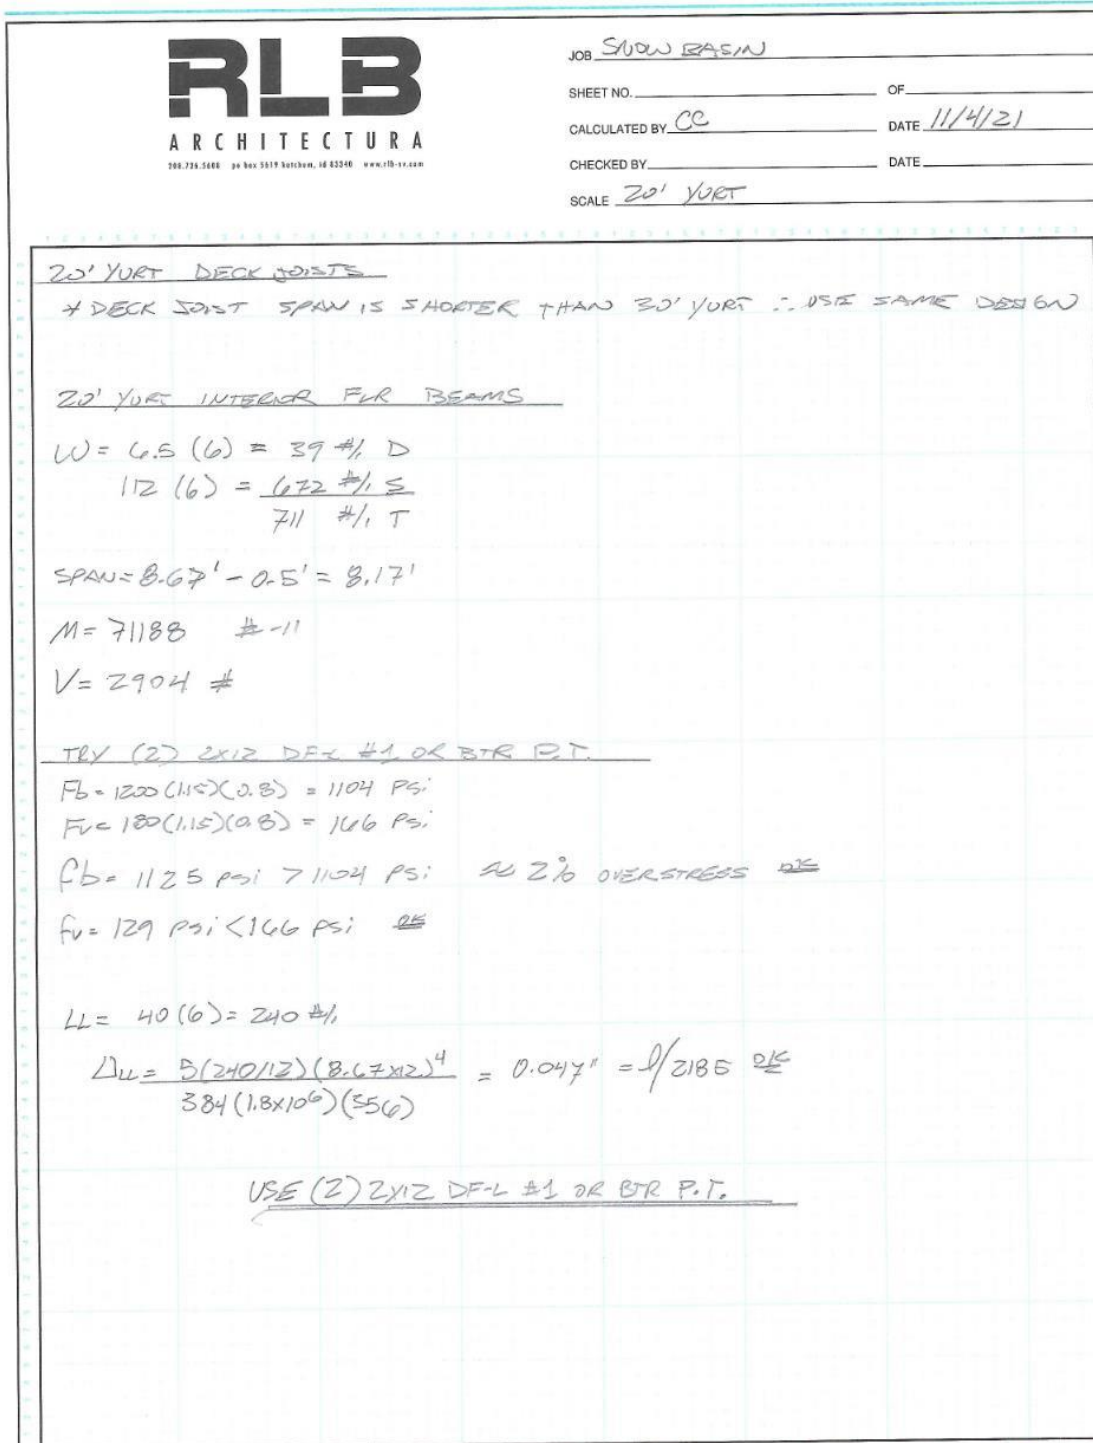 RLB
ARCHITECTURA
208.726.5608 po box 5619 ketchum, id 83340 www.rlb-sv.com
JOB SNOW BASIN
SHEET NO. OF
CALCULATED BY CC DATE 11/4/21
CHECKED BY DATE
SCALE 20' YURT
20' YURT DECK JOISTS
* DECK JOIST SPAN IS SHORTER THAN 30' YURT ∴ USE SAME DESIGN
20' YURT INTERIOR FLR BEAMS
W = 6.5 (6) = 39 #/' D
112 (6) = 672 #/' S
711 #/' T
SPAN = 8.67' - 0.5' = 8.17'
M = 71188 #-"
V = 2904 #
TRY (2) 2X12 DF-L #1 OR BTR P.T.
Fb = 1200 (1.15)(0.8) = 1104 PSi
Fv = 180 (1.15)(0.8) = 166 PSi
fb = 1125 psi > 1104 PSi ≈ 2% OVERSTRESS OK
fv = 129 psi < 166 psi OK
LL = 40 (6) = 240 #/'
ΔLL = 5(240/12)(8.67x12)^4 / 384 (1.8x10^6)(356) = 0.047" = l/2185 OK
USE (2) 2X12 DF-L #1 OR BTR P.T.